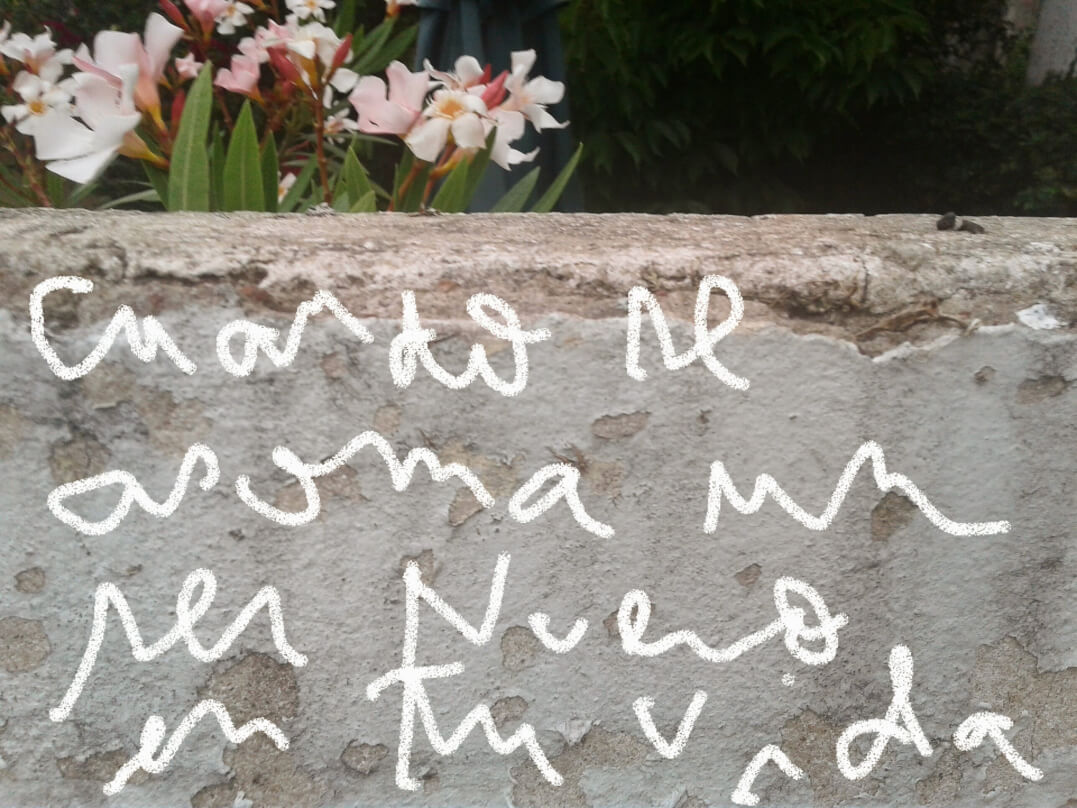 Cuando se
asoma un
ser Nuevo
en tu vida